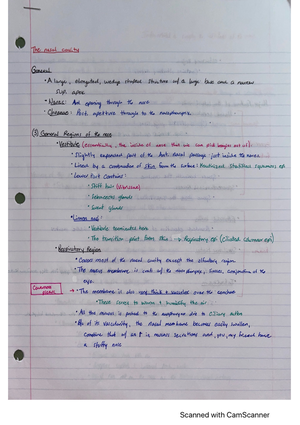 The nasal cavity
General
• A large, elongated, wedge shaped structure w/ a large base and a narrow
sup. apex
• Nares: Ant. opening through the nose
• Choanae: Post. aperture through to the nasopharynx
3 General Regions of the nose
• Vestibule (essentially, the inside of nose that we can pick boogers out of)
• Slightly expanded part of the Ant. nasal passage just inside the nares
• Lined by a continuation of skin from the surface: Keratinized Stratified squamous ep
• Lower Part contains:
• Stiff hair (vibrissae)
• Sebaceous glands
• Sweat glands
• Limen nasi:
• Vestibule terminates here
• The transition point from skin → Respiratory ep (Ciliated columnar ep)
• Respiratory Region
• Covers most of the nasal cavity except the olfactory region
• The mucus membrane is cont. w/ the nasopharynx, sinuses, conjunctiva of the
eye.
→ • The membrane is also very thick & vascular over the conchae
• These convey to warm & humidify the air
• All the mucus is pushed to the nasopharynx due to ciliary action
• Bc of its vascularity, the nasal membrane becomes easily swollen,
combine that w/ an ↑ in mucus secretions and, you, my friend have
a stuffy nose
Scanned with CamScanner